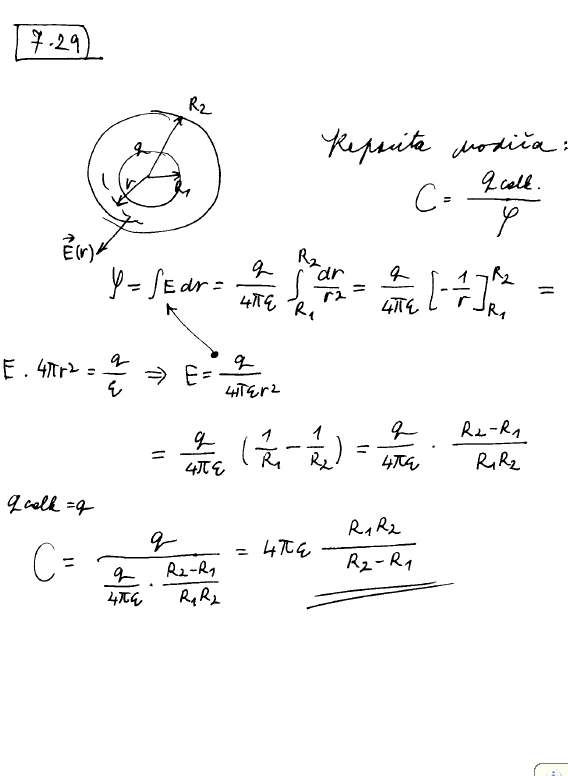 7.29
R2
q
r
R1
E⃗(r)
Kapacita vodiča:
C = q celk. / φ
φ = ∫E dr = q/4πε ∫_{R1}^{R2} dr/r² = q/4πε [-1/r]_{R1}^{R2} =
E . 4πr² = q/ε ⇒ E = q/4πεr²
= q/4πε (1/R1 - 1/R2) = q/4πε · R2-R1/R1R2
q celk = q
C = q / (q/4πε · R2-R1/R1R2) = 4πε R1R2/R2-R1